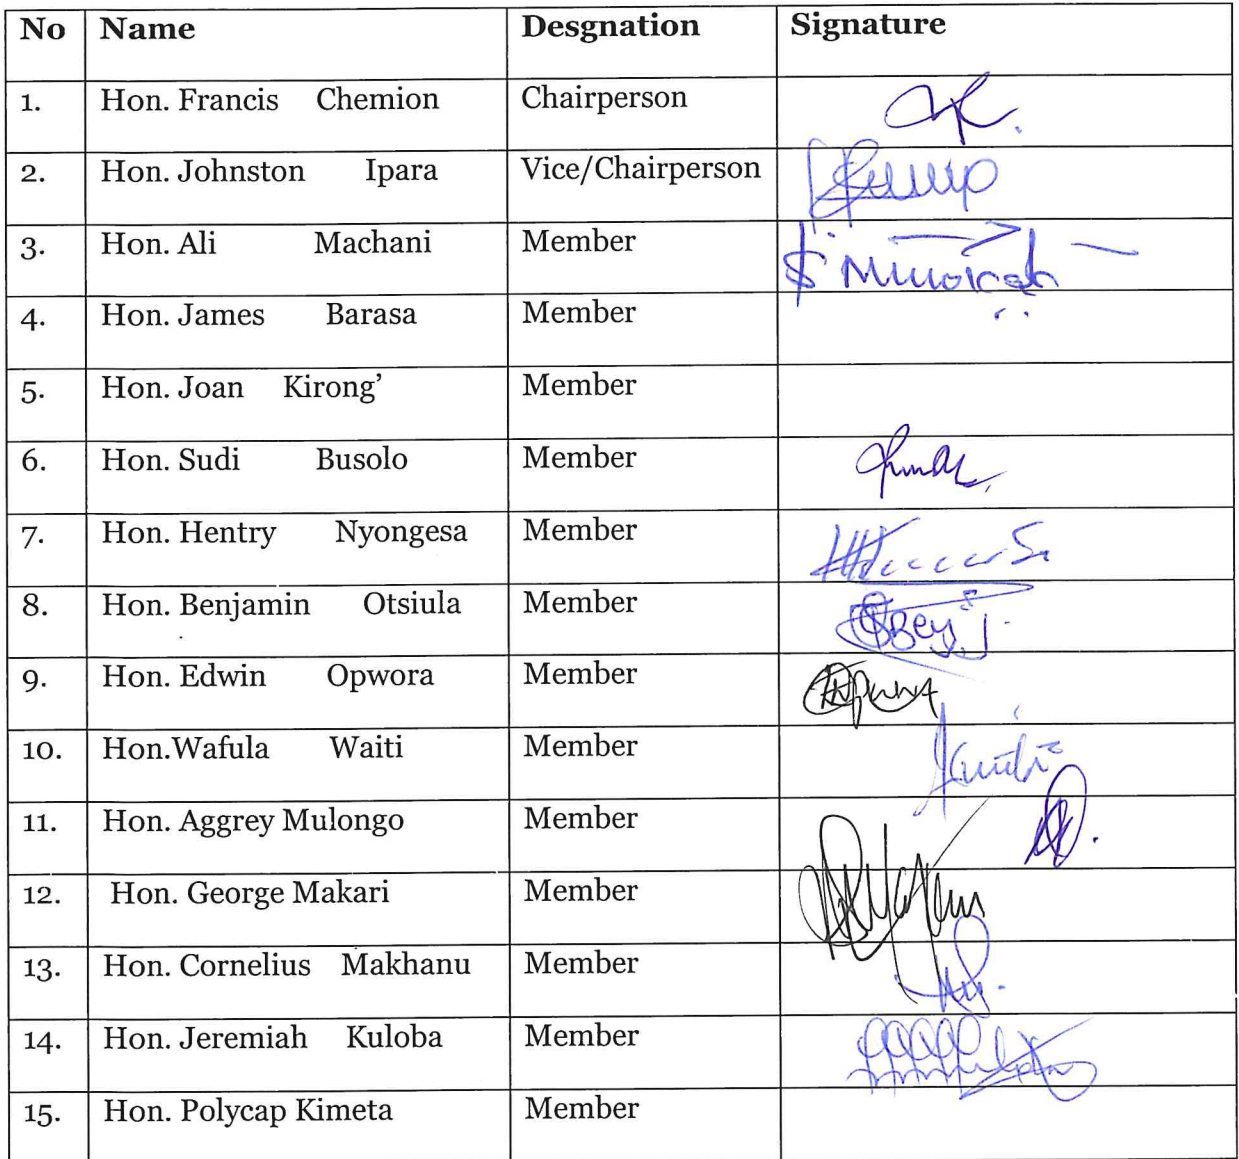 No Name Desgnation Signature
1. Hon. Francis Chemion Chairperson
2. Hon. Johnston Ipara Vice/Chairperson
3. Hon. Ali Machani Member
4. Hon. James Barasa Member
5. Hon. Joan Kirong’ Member
6. Hon. Sudi Busolo Member
7. Hon. Hentry Nyongesa Member
8. Hon. Benjamin Otsiula Member
9. Hon. Edwin Opwora Member
10. Hon.Wafula Waiti Member
11. Hon. Aggrey Mulongo Member
12. Hon. George Makari Member
13. Hon. Cornelius Makhanu Member
14. Hon. Jeremiah Kuloba Member
15. Hon. Polycap Kimeta Member